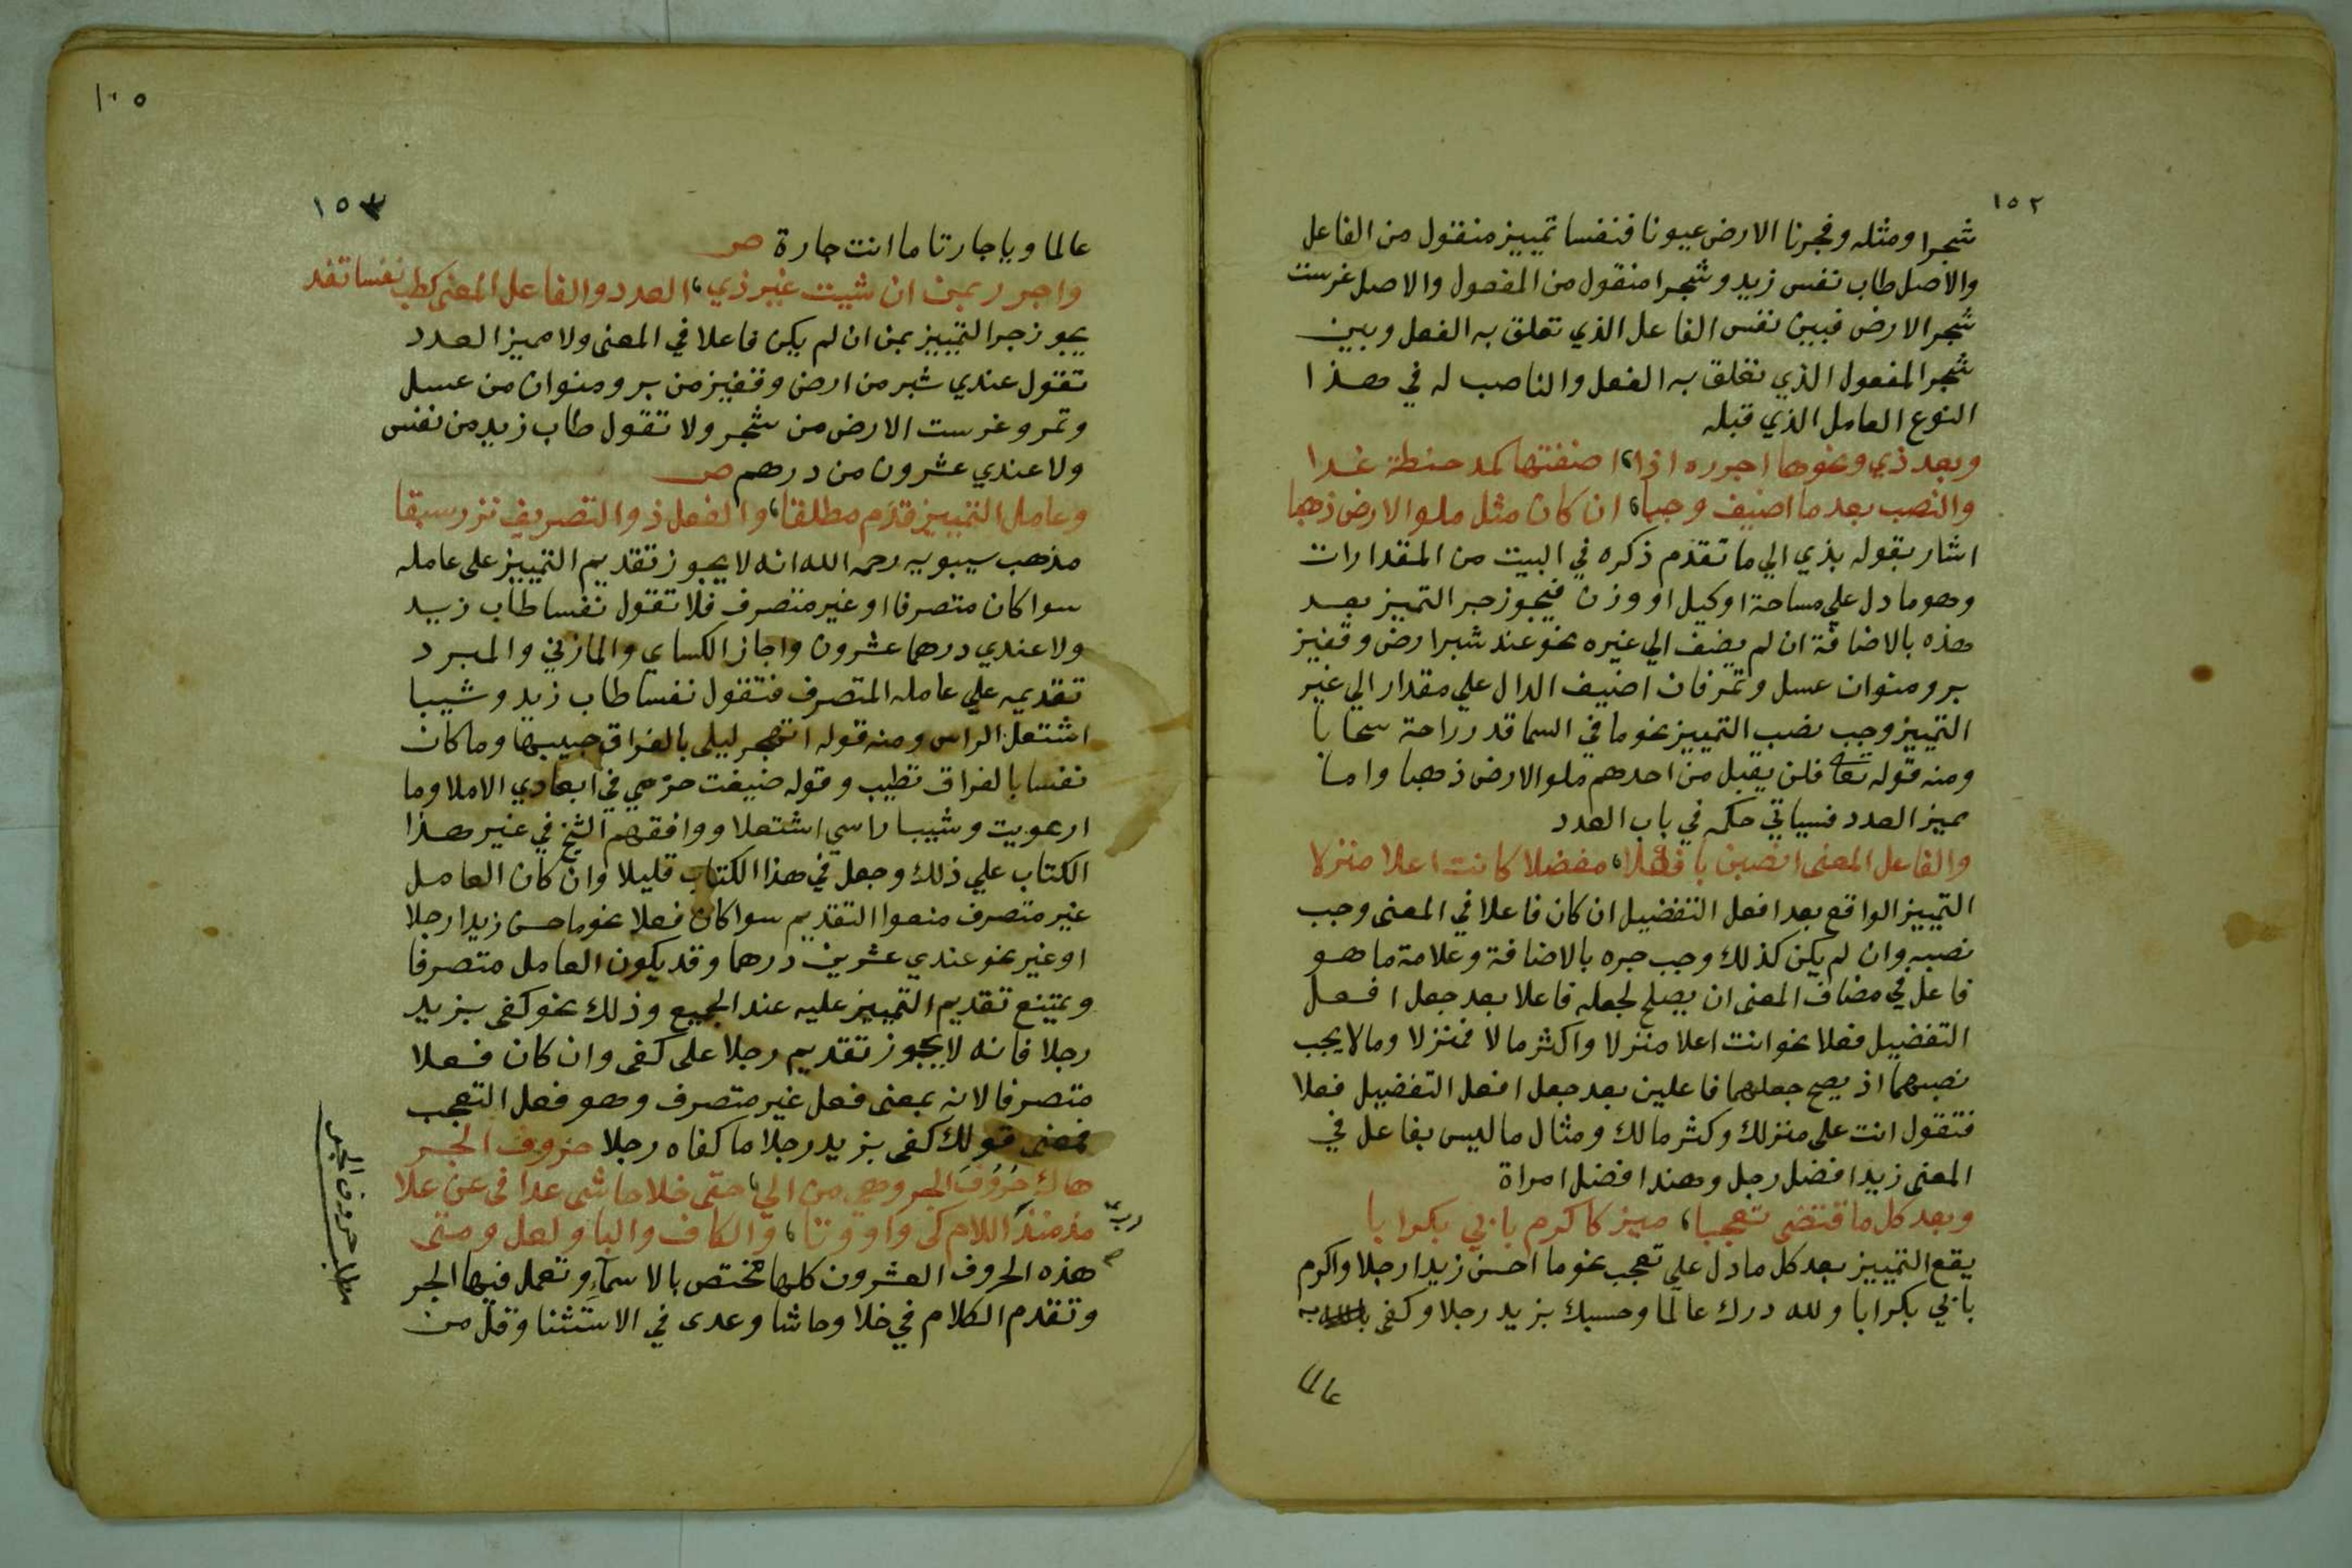 ١٥٢
شجرا ومثله وفجرنا الارض عيونا فنفسا تمييز منقول من الفاعل
والاصل طاب نفس زيد وشجرا منقول من المفعول والاصل غرست
شجر الارض فبين نفس الفاعل الذي تعلق به الفعل وبين
شجر المفعول الذي تعلق به الفعل والناصب له في هذا
النوع العامل الذي قبله
وبعد ذي ونحوها اجرره اذا، اضفتها كمد حنطة غدا
والنصب بعد ما اضيف وجبا، ان كان مثل ملو الارض ذهبا
اشار بقوله بذي الي ما تقدم ذكره في البيت من المقدارات
وهو ما دل علي مساحة او كيل او وزن فيجوز جر التمييز بعد
هذه بالاضافة ان لم يضف الي غيره نحو عند شبر ارض وقفيز
بر ومنوان عسل وتمر فان اضيف الدال علي مقدار الي غير
التمييز وجب نصب التمييز نحو ما في السما قدر راحة سحابا
ومنه قوله تعالى فلن يقبل من احدهم ملو الارض ذهبا واما
مميز العدد فسياتي حكمه في باب العدد
والفاعل المعنى انصبن بافعلا، مفضلا كانت اعلا منزلا
التمييز الواقع بعد افعل التفضيل ان كان فاعلا في المعنى وجب
نصبه وان لم يكن كذلك وجب جره بالاضافة وعلامة ما هو
فاعل في مضاف المعنى ان يصلح لجعله فاعلا بعد جعل افعل
التفضيل فعلا نحو انت اعلا منزلا واكثر مالا فمنزلا ومالا يجب
نصبهما اذ يصح جعلهما فاعلين بعد جعل افعل التفضيل فعلا
فتقول انت على منزلك وكثر مالك ومثال ما ليس بفاعل في
المعنى زيد افضل رجل وهند افضل امراة
وبعد كل ما قتضى تعجبا، ميز كاكرم بابي بكر ابا
يقع التمييز بعد كل ما دل علي تعجب نحو ما احسن زيدا رجلا واكرم
بابي بكر ابا ولله درك عالما وحسبك بزيد رجلا وكفى به
عالما
١٠٥
١٥٣
عالما ويا جارتا ما انت جارة ص
واجرر بمن ان شيت غير ذي، العدد والفاعل المعنى كطب نفسا تفد
يجوز جر التمييز بمن ان لم يكن فاعلا في المعنى ولا مميز العدد
تقول عندي شبر من ارض وقفيز من بر ومنوان من عسل
وتمر وغرست الارض من شجر ولا تقول طاب زيد من نفس
ولا عندي عشرون من درهم ص
وعامل التمييز قدم مطلقا، والفعل ذو التصريف نزر سبقا
مذهب سيبويه رحمه الله انه لا يجوز تقديم التمييز على عامله
سوا كان متصرفا او غير متصرف فلا تقول نفسا طاب زيد
ولا عندي درهما عشرون واجاز الكساي والمازني والمبرد
تقديمه علي عامله المتصرف فتقول نفسا طاب زيد وشيبا
اشتعل الراس ومنه قوله اتهجر ليلى بالفراق حبيبها وما كان
نفسا بالفراق تطيب وقوله ضيعت حزمي في ابعادي الاملا وما
ارعويت وشيبا راسي اشتعلا ووافقهم الشيخ في غير هذا
الكتاب علي ذلك وجعل في هذا الكتاب قليلا وان كان العامل
غير متصرف منعوا التقديم سوا كان فعلا نحو ما حسن زيدا رجلا
او غير نحو عندي عشرين درهما وقد يكون العامل متصرفا
ويمتنع تقديم التمييز عليه عند الجميع وذلك نحو كفى بزيد
رجلا فانه لا يجوز تقديم رجلا على كفى وان كان فعلا
متصرفا لانه بمعنى فعل غير متصرف وهو فعل التعجب
فمعنى قولك كفى بزيد رجلا ما كفاه رجلا حروف الجر
هاك حروف الجر وهي من الي، حتى خلا حاشى عدا في عن علا
مذ منذ اللام كى واو وتا، والكاف والبا ولعل ومتى
رب
هذه الحروف العشرون كلها مختص بالاسماء وتعمل فيها الجر
وتقدم الكلام في خلا وحاشا وعدى في الاستثنا وقل من
مطلب حروف الجر